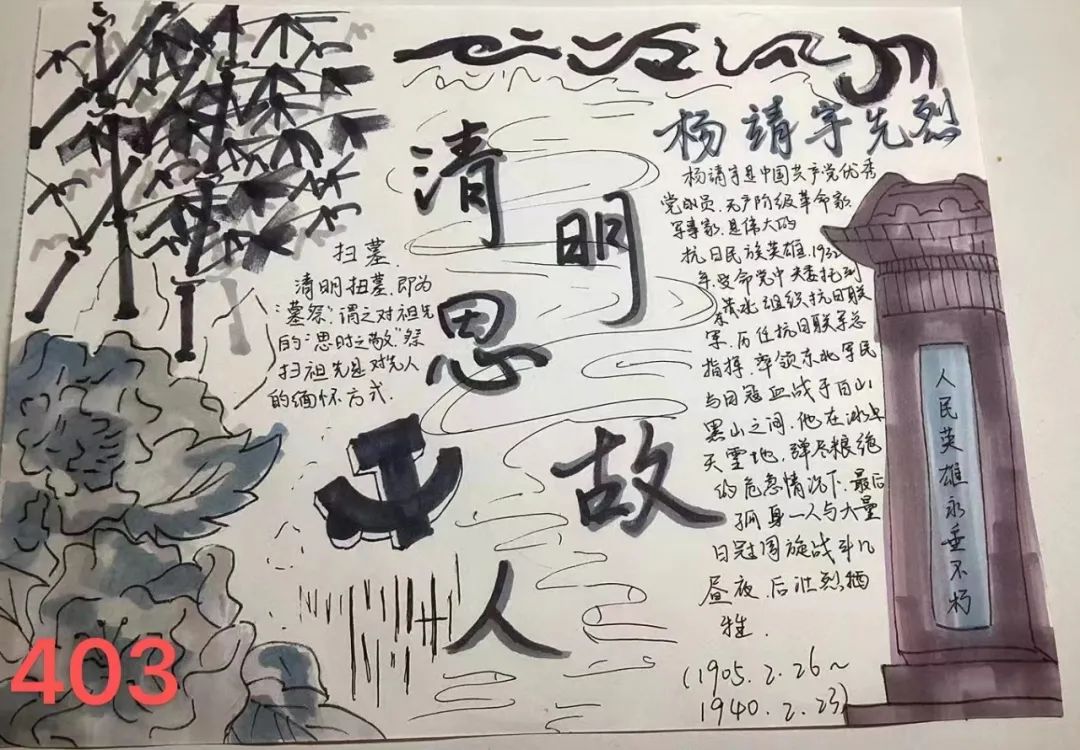 清明
思故
人
扫墓.
清明扫墓,即为
“墓祭”,谓之对祖先
的“思时之敬”祭
扫祖先是对先人
的缅怀方式.
杨靖宇先烈
杨靖宇是中国共产党优秀
党员.无产阶级革命家.
军事家.是伟大的
抗日民族英雄.1932
年.受命党中央委托到
东北组织抗日联
军.历任抗日联军总
指挥.率领东北军民
与日冠血战于白山
黑山之间.他在冰
天雪地,弹尽粮绝
的危急情况下.最后
孤身一人与大量
日冠周旋战斗几
昼夜.后壮烈牺
牲.
(1905.2.26~
1940.2.23)
人民英雄永垂不朽
403